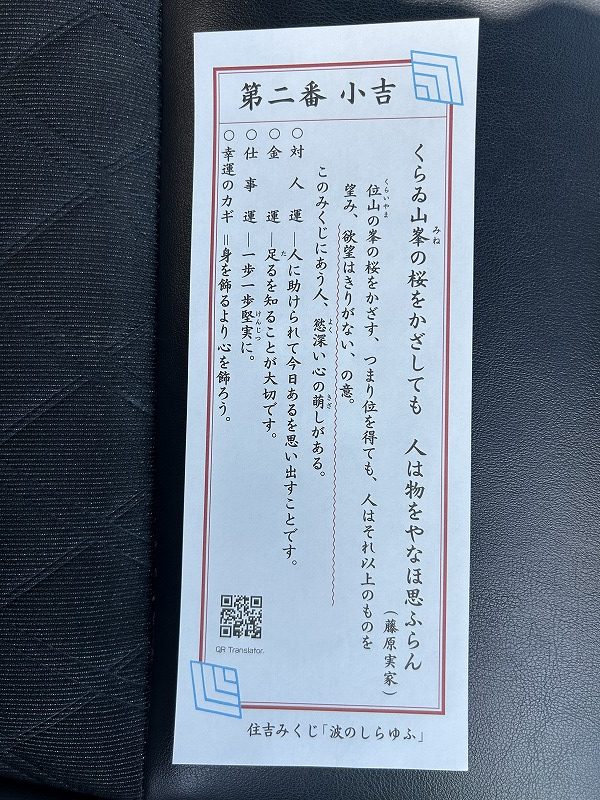 第二番 小吉
くらゐ山峯の桜をかざしても 人は物をやなほ思ふらん
みね
(藤原実家)
位山の峯の桜をかざす、つまり位を得ても、人はそれ以上のものを
くらいやま
望み、欲望はきりがない、の意。
このみくじにあう人、慾深い心の萌しがある。
よく
きざ
○対人運―人に助けられて今日あるを思い出すことです。
○金運―足るを知ることが大切です。
た
○仕事運―一歩一歩堅実に。
けんじつ
○幸運のカギ=身を飾るより心を飾ろう。
QR Translator.
住吉みくじ「波のしらゆふ」